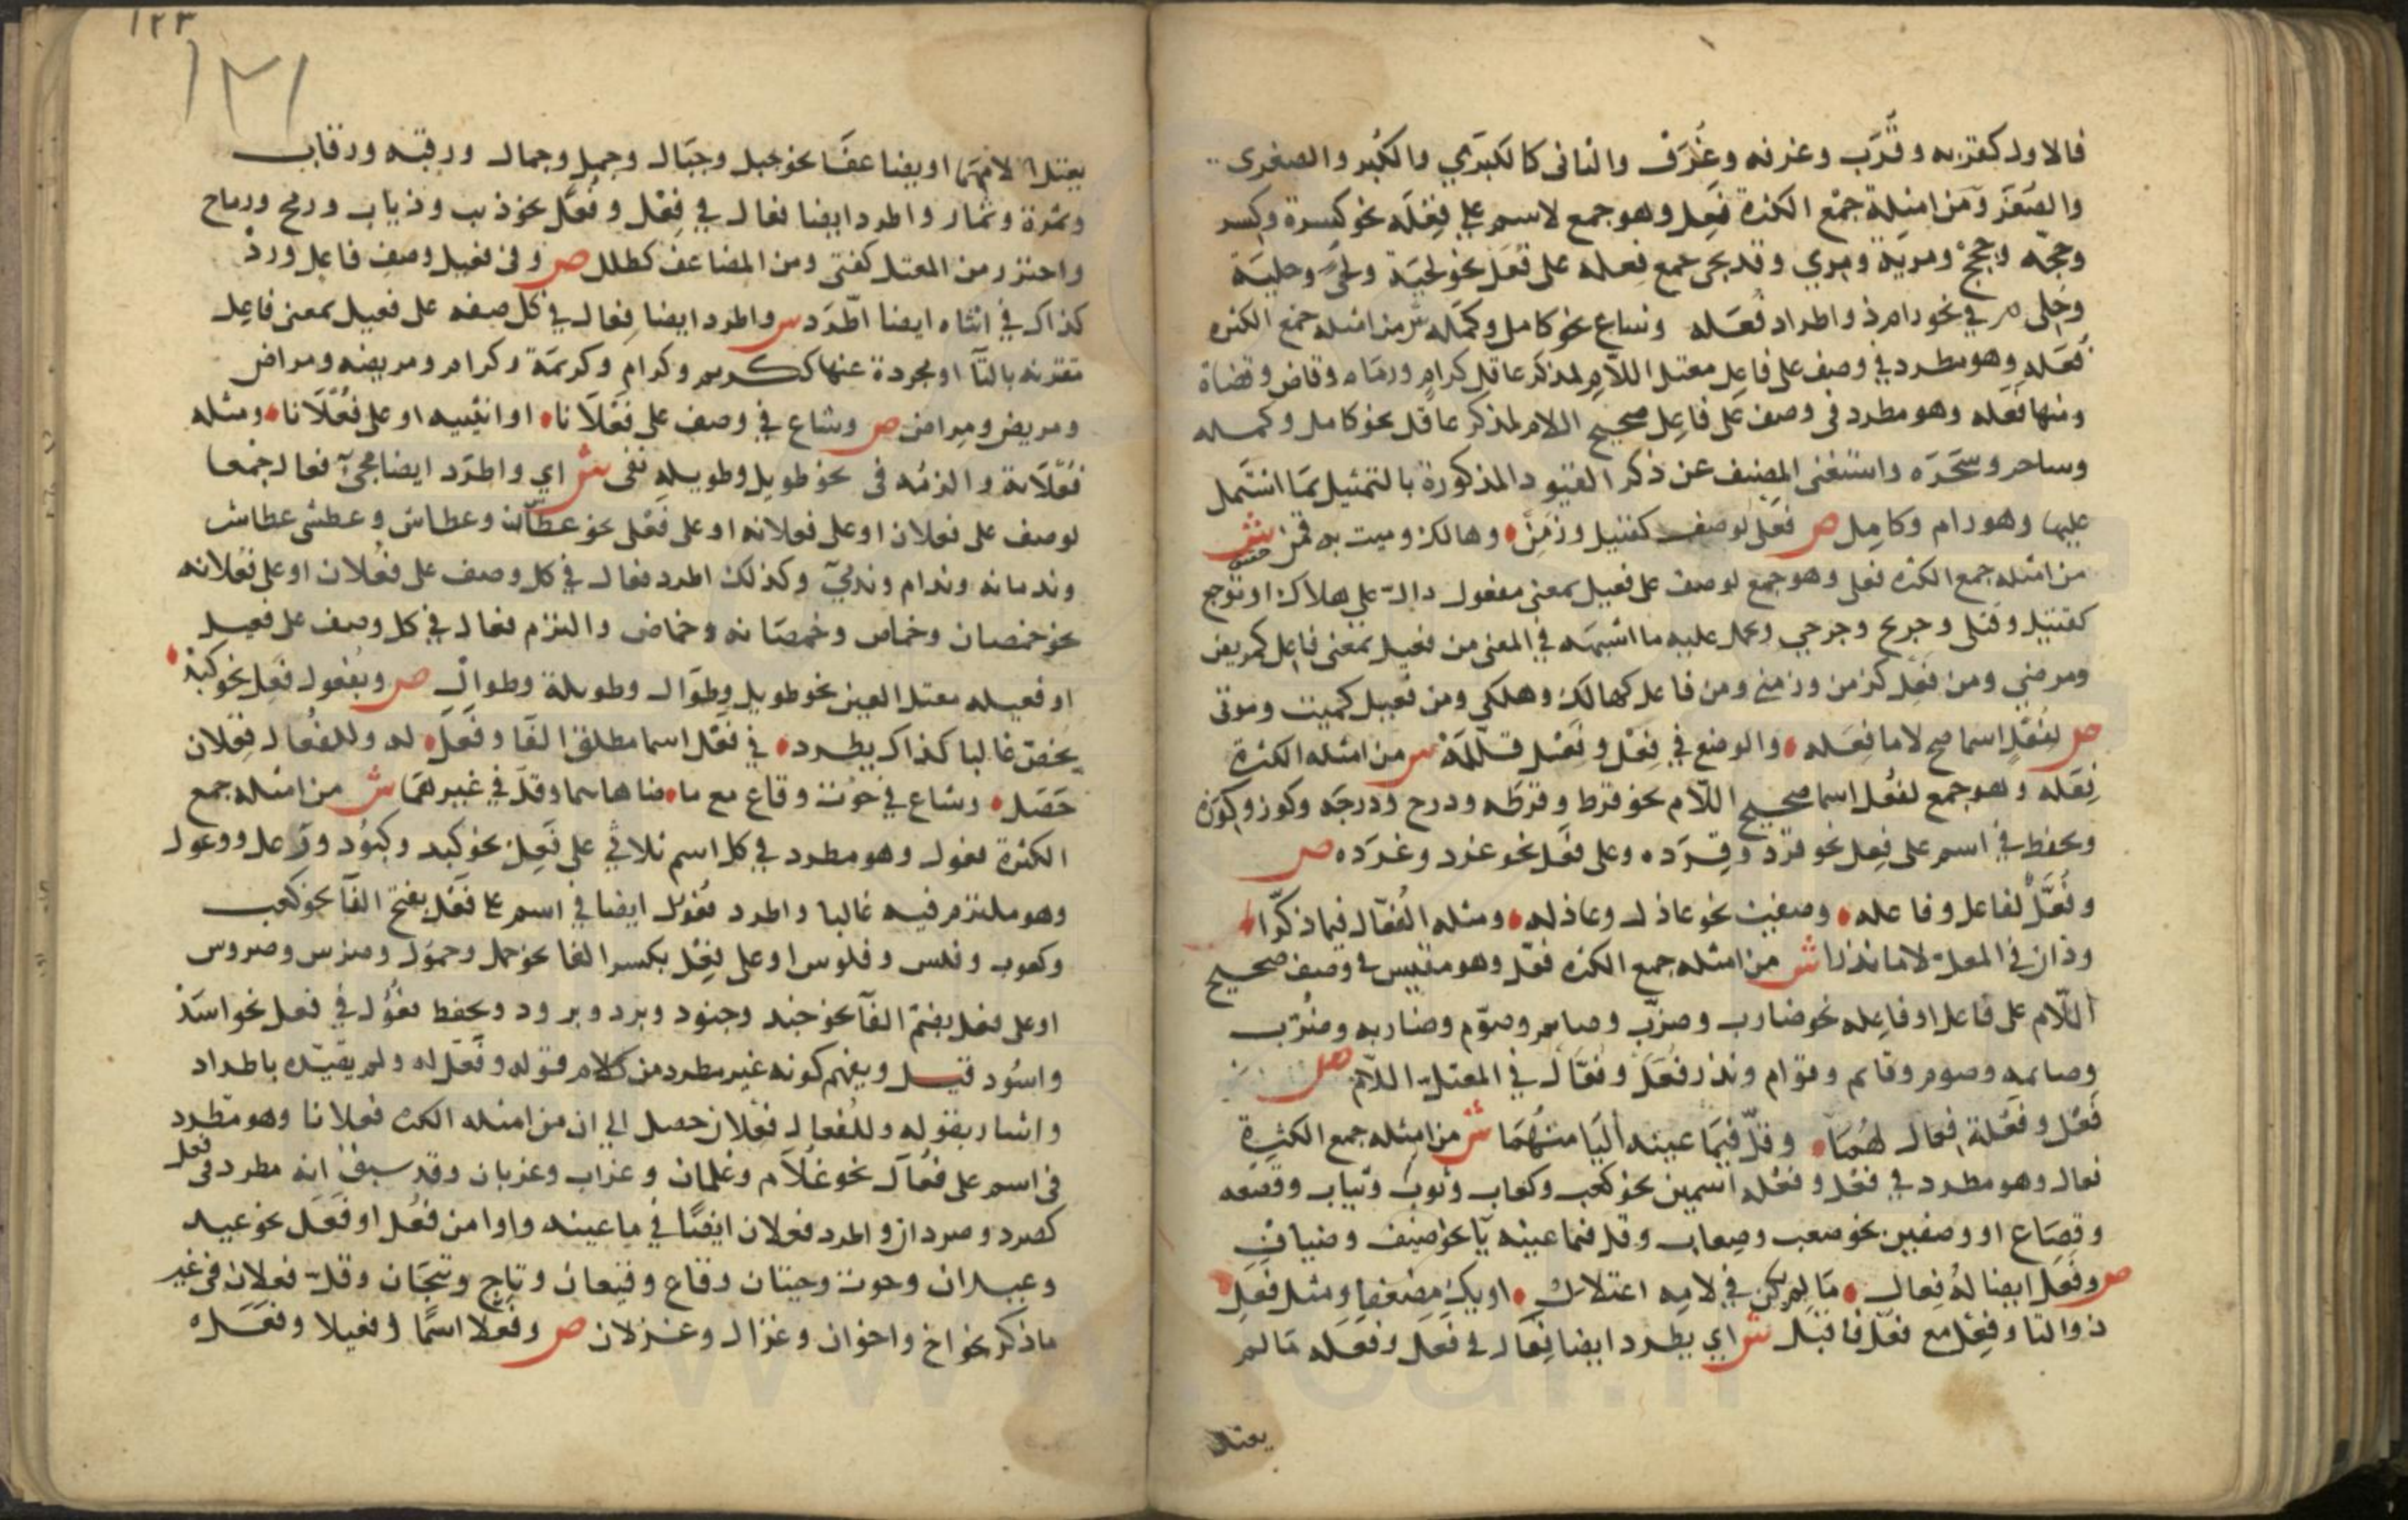 فالاول كقربه وقُرَب وغرفه وغُرَف والثانى كالكبرَي والكُبر والصغرى
والصُغَر ومن امثِلة جمْع الكثرة فِعَل وهو جمع لاسم على فِعْلَه نحو كِسرة وكِسر
وحجّه وحِجَجْ ومريَة ومِري وقد يجى جمع فِعله على فُعَل نحو لحيَة ولُحَى وحليَة
وحُلى ص في نحو رام ذو اطراد فُعَله وشاع نحو كامل وكَمَله ش من امثله جمْع الكثره
فُعَله وهو مطرد في وصف على فاعِل معتل اللاّم لمذكر عاقل كرامٍ ورمَاه وقاض وقضاة
ومنها فَعله وهو مطرد فى وصف على فاعِل صحيح اللام لمذكر عاقل نحو كامل وكمله
وساحر وسَحَرَه واستغنى المصنف عن ذكر القيود المذكورة بالتمثيل بمَا اشتمل
عليها وهو رام وكامِل ص فَعْلى لوصف كقتيل وزَمِنْ وهالك وميت به قمن ش
من امثله جمع الكثره فعلى وهو جمع لوصف على فعيل بمعنى مفعول دالّ على هلاك او توجع
كقتيل وقتلى وجريح وجرحي وحمل عليه ما اشبهَه في المعنى من فعيل بمعنى فاعِل كمريض
ومرضي ومن فَعِل كزمن وزمني ومن فاعل كهالك وهلكي ومن فيعل كميت وموتى
ص لفُعْلٍ اسما صح لاما فِعَله والوضع في فِعْل وفَعْل قلّلَهْ ش من امثله الكثرة
فِعَله وهو جمع لفُعْل اسما صحيح اللاّم نحو قرط وقرَطه ودرج ودرجَه وكوز وكِوَزه
ويحفظ في اسم على فِعل نحو قرد وقِرَده وعلى فَعْل نحو غرد وغرَده ص
وفُعَّلٌ لفاعل وفاعله وصفين نحو عاذل وعاذله ومثله الفُعّال فيما ذكّرا
وذان في المعلّ لاما ندرا ش من امثله جمع الكثره فعّل وهو مقيس فى وصف صحيح
اللاّم على فاعل او فاعِله نحو ضارب وضرّب وصايم وصوّم وضاربه وضرّب
وصايمه وصوم وقايم وقوّام وندر فُعَّل وفُعّال في المعتلّ اللاّم ص
فَعْل وفَعْلة فِعال لهُمَا وقلّ فيمَا عينه اليَا منهُمَا ش من امثله جمع الكثرة
فعال وهو مطرد في فعْل وفَعْله اسمين نحو كعب وكعاب وثوب وثياب وقصعه
وقِصَاع او وصفين نحو صعب وصِعاب وقل فيما عينه يآ نحو ضيف وضيافٍ
ص وفَعَل ايضا لهُ فِعال مَا لم يكن في لامِه اعتلال او يك مضعفا ومثل فَعَلِ
ذو التا وفِعْل مع فُعْل فاقبَل ش اي يطرد ايضا فِعَال فى فَعَل وفَعَله مَا لم
يعتل
١٢٣
١٢١
يعتل لامُهمَا او يضاعفَا نحو جبل وجبَال وجمل وجمال ورقبه ورقاب
وثمرة وثمار واطرد ايضا فعال في فِعْل وفُعْل نحو ذيب وذياب ورمح ورماح
واحترز من المعتل كفتى ومن المضاعف كطلل ص وفى فعيل وصف فاعل وردْ
كذاك في انثاه ايضا اطّرَد ش واطرد ايضا فِعال في كل صفه على فعيل بمعنى فاعِل
مقترنه بالتآ او مجردة عنها ككريم وكرام وكريمَة وكرام ومريضه ومراض
ومريض ومِراض ص وشاع في وصف على فَعْلاَنا او انثييه او على فُعْلاَنا ومثله
فُعْلاَنة والزمُه فى نحو طويل وطويله تفى ش اي واطّرَد ايضا مجئ فعال جمْعا
لوصف على فعلان او على فعلانه او على فَعْلى نحو عطشان وعطاش وعطشى عطاش
وندمانه وندام وندميّ وكذلك اطرد فعال في كل وصف على فُعْلان او على فُعْلانه
نحو خمصان وخماص وخمصَانه وخماص والتزم فعال في كل وصف على فعيل
او فعيله معتل العين نحو طويل وطوَال وطويلة وطوالٍ ص وبفُعول فَعِل نحو كبدْ
يُخصّ غالبا كذاك يطرد في فَعْل اسما مطلق الفَا وفَعَل له وللفُعَال فِعْلان
حَصَل وشاع في حُوت وقاع مع ما ضاهاهما وقلّ في غيرهمَا ش من امثله جمع
الكثرة فعول وهو مطرد في كل اسم ثلاثي على فَعِل نحو كبد وكبُود ووَعل ووعول
وهو ملتزم فيه غالبا واطرد فعُول ايضا في اسم على فَعْل بفتح الفآ نحو كعب
وكعوب وفلس وفلوس او على فِعْل بكسر الفا نحو حمل وحمُول وضرس وضروس
او على فعل بضمّ الفآ نحو جند وجنود وبرد وبرود ويحفظ فعُول في فعل نحو اسَدْ
واسُود قيل ويفهم كونه غير مطرد من كلام قوله وفَعَل له ولم يقيّده باطراد
واشار بقوله وللفُعال فِعْلان حصل الي ان من امثله الكثره فعلانا وهو مطّرد
فى اسم على فُعال نحو غُلاَم وغلمان وغراب وغربان وقد سبق انه مطرد فى فعل
كصرد وصردان واطرد فعلان ايضًا في ما عينه واوا من فُعْل او فَعَل نحو عيد
وعيدان وحوت وحيتان وقاع وقيعان وتاج وتيجَان وقلّ فعلان فى غير
ماذكر نحو اخ واخوان وغزال وغزلان ص وفَعْلاً اسمًا وفعيلا وفَعَل ه